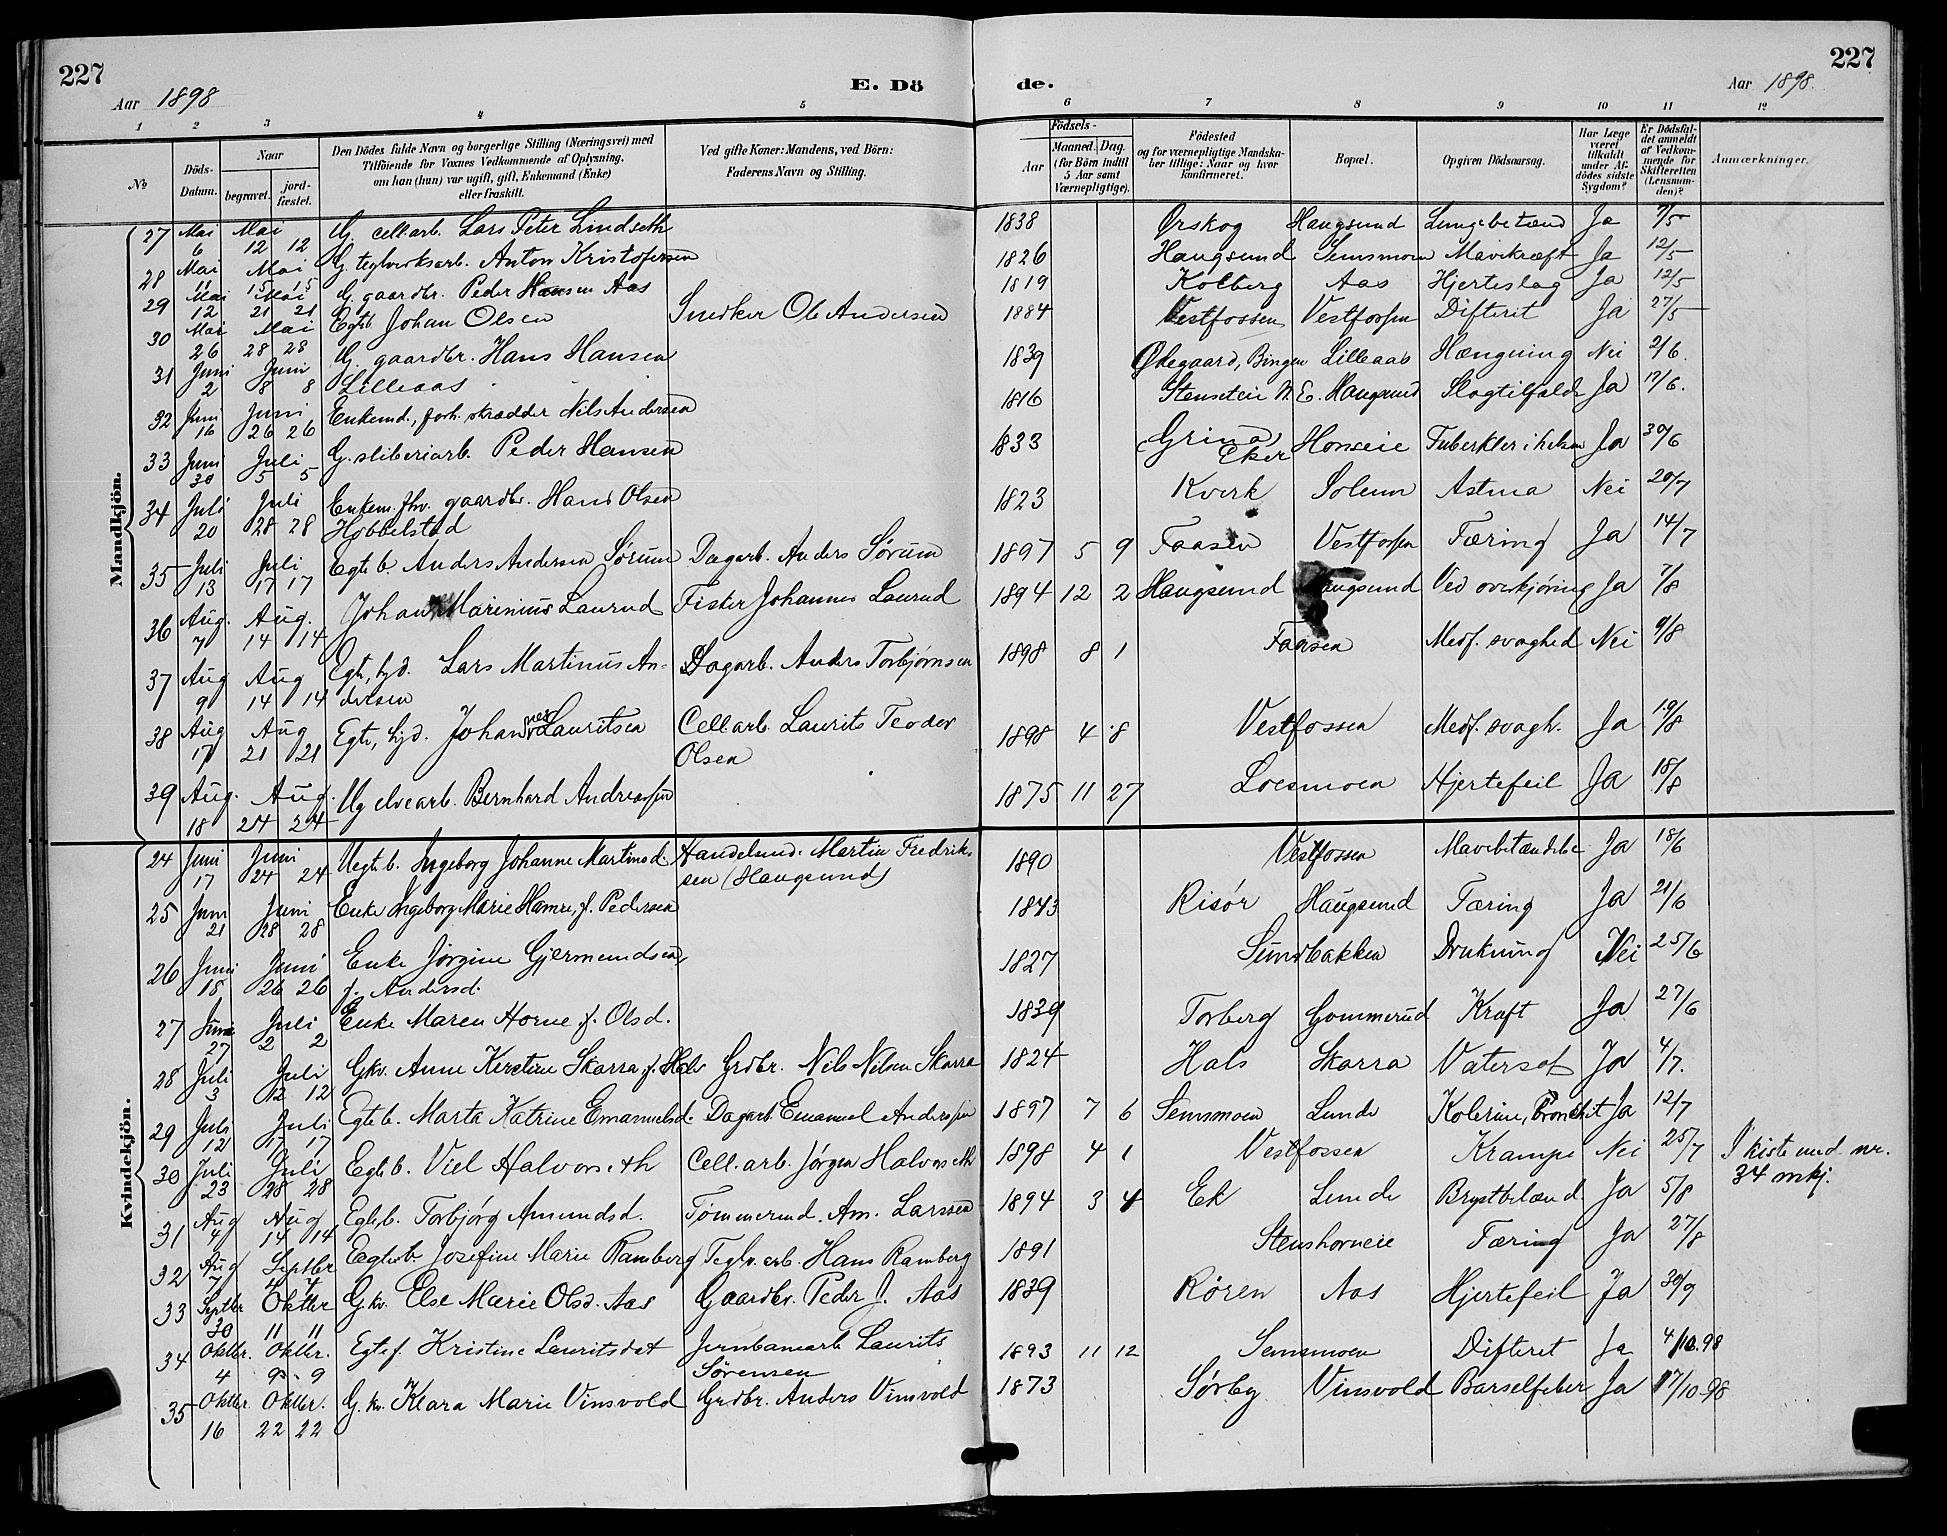 227
Aar 1898
E. Dö
de.
Aar 1898.
227
1 2 3 4 5 6 7 8 9 10 11 12
No
Döds-Datum.
Naar
begravet.
jord-fæstet.
Den Dödes fulde Navn og borgerlige Stilling (Næringsvei) med
Tilföiende for Voxnes Vedkommende af Oplysning,
om han (hun) var ugift, gift, Enkemand (Enke)
eller fraskilt.
Ved gifte Koner: Mandens, ved Börn:
Faderens Navn og Stilling.
Födsels-
Aar
Maaned. Dag.
(for Börn indtil
5 Aar samt
Værnepligtige).
Födested
og for værnepligtige Mandska-
ber tillige: Naar og hvor
konfirmeret.
Bopæl.
Opgiven Dödsaarsag.
Har Læge
været
tilkaldt
under Af-
dödes sidste
Sygdom?
Er Dödsfal-
det anmeldt
af Vedkom-
mende for
Skifteretten
(Lensman-
den)?
Anmærkninger.
Mandkjön.
27 Mai 6 Mai 12 12 Ug cellarb. Lars Peter Lindseth 1838 Ørskog Haugsund Lungebetænd Ja 7/5
28 Mai 11 Mai 15 15 G. teglverksarb. Anton Kristofersen 1826 Haugsund Semsmoen Mavekræft Ja 12/5
29 Mai 12 Mai 21 21 G. gaardbr. Peder Hansen Aas 1819 Kolberg Aas Hjerteslag Ja 12/5
30 Mai 26 Mai 28 28 Egtb Johan Olsen Snedker Ole Andersen 1884 Vestfossen Vestfossen Difterit Ja 27/5
31 Juni 2 Juni 8 8 G. gaardbr. Hans Hansen
Lilleaas 1839 Ødegaard, Bingen Lilleaas Hængning Nei 2/6.
32 Juni 16 Juni 26 26 Enkemd., forh. skrædder Nils Andersen 1816 Stenseteie N. E. Haugsund Slagtilfælde Ja 17/6.
33 Juni 30 Juli 5 5 G. sliberiarb. Peder Hansen 1833 Grina, Eker Horseie Tuberkler i halsen Ja 30/6
34 Juli 20 Juli 28 28 Enkem. fhv. gaardbr. Hans Olsen
Hobbelstad 1823 Kverk Solum Astma Nei 20/7
35 Juli 13 Juli 17 17 Egte b. Anders Andersen Sørum Dagarb. Anders Sørum 1897 5 9 Faasen Vestfossen Tæring Ja 14/7
36 Aug. 7 Aug. 14 14 Johan Marinius Laurud Fister Johannes Laurud 1894 12 2 Haugsund Haugsund Ved overkjøring Ja 7/8
37 Aug 9 Aug 14 14 Egte, hjd. Lars Martinus An-
dersen Dagarb. Anders Torbjørnsen 1898 8 1 Faasen Medf. svaghed Nei 9/8
38 Aug 17 Aug 21 21 Egte, hjd. Johannes Lauritsen Cellarb. Laurits Teodor
Olsen 1898 4 8 Vestfossen Medf. svagh. Ja 19/8
39 Aug. 18 Aug. 24 24 Ug elvearb. Bernhard Andreassen 1875 11 27 Loesmoen Hjertefeil Ja 18/8
Kvindekjön.
24 Juni 17 Juni 24 24 Uegte b. Ingeborg Johanne Martinsd. Handelsmd. Martin Fredrik-
sen (Haugsund) 1890 Vestfossen Mavebetændelse Ja 18/6
25 Juni 21 Juni 28 28 Enke Ingeborg Marie Hamre, f. Pedersen 1843 Risør Haugsund Tæring Ja 21/6
26 Juni 18 Juni 26 26 Enke Jørgine Gjermundsen,
f. Andersd. 1827 Sundbakken Drukning Nei 25/6
27 Juni 27 Juli 2 2 Enke Maren Horne f. Olsd. 1839 Torberg Gommerud Kræft Ja 27/6
28 Juli 3 Juli 12 12 Gkv. Anne Kirstine Skarra, f. Hals Grdbr. Nils Nilsen Skarra 1824 Hals Skarra Vatersot Ja 4/7.
29 Juli 12 Juli 17 17 Egte b. Marta Katrine Emanuelsd. Dagarb. Emanuel Anderssen 1897 7 6 Semsmoen Lunde Kolerine, Bronchit Ja 12/7
30 Juli 23 Juli 28 28 Egte b. Viel Halvorseth Cell. arb. Jørgen Halvorseth 1898 4 1 Vestfossen Krampe Nei 25/7 I kiste med nr.
34 mkj.
31 Aug 4 Aug 14 14 Egteb. Torbjørg Amundsd. Tømmermd. Am. Larssen 1894 3 4 Ek Lunde Brystbetænd. Ja 5/8
32 Aug 7 Septbr 4 4 Eegte b. Josefine Marie Ramberg Teglv. arb. Hans Ramberg 1891 Stenshorneie Tæring Ja 27/8
33 Septbr 30 Oktbr 11 11 Gkv. Else Marie Olsd. Aas Gaardbr. Peder J. Aas 1839 Røren Aas Hjertefeil Ja 30/9
34 Oktbr. 4 Oktbr. 9 9 Egte f. Kristine Lauritsdat Jernbanearb Laurits
Sørensen 1893 11 12 Semsmoen Difterit Ja 4/10.98
35 Oktbr. 16 Oktbr. 22 22 G. kv. Klara Marie Vinsvold Grdbr. Anders Vinsvold 1873 Sørby Vinsvold Barselfeber Ja 17/10.98